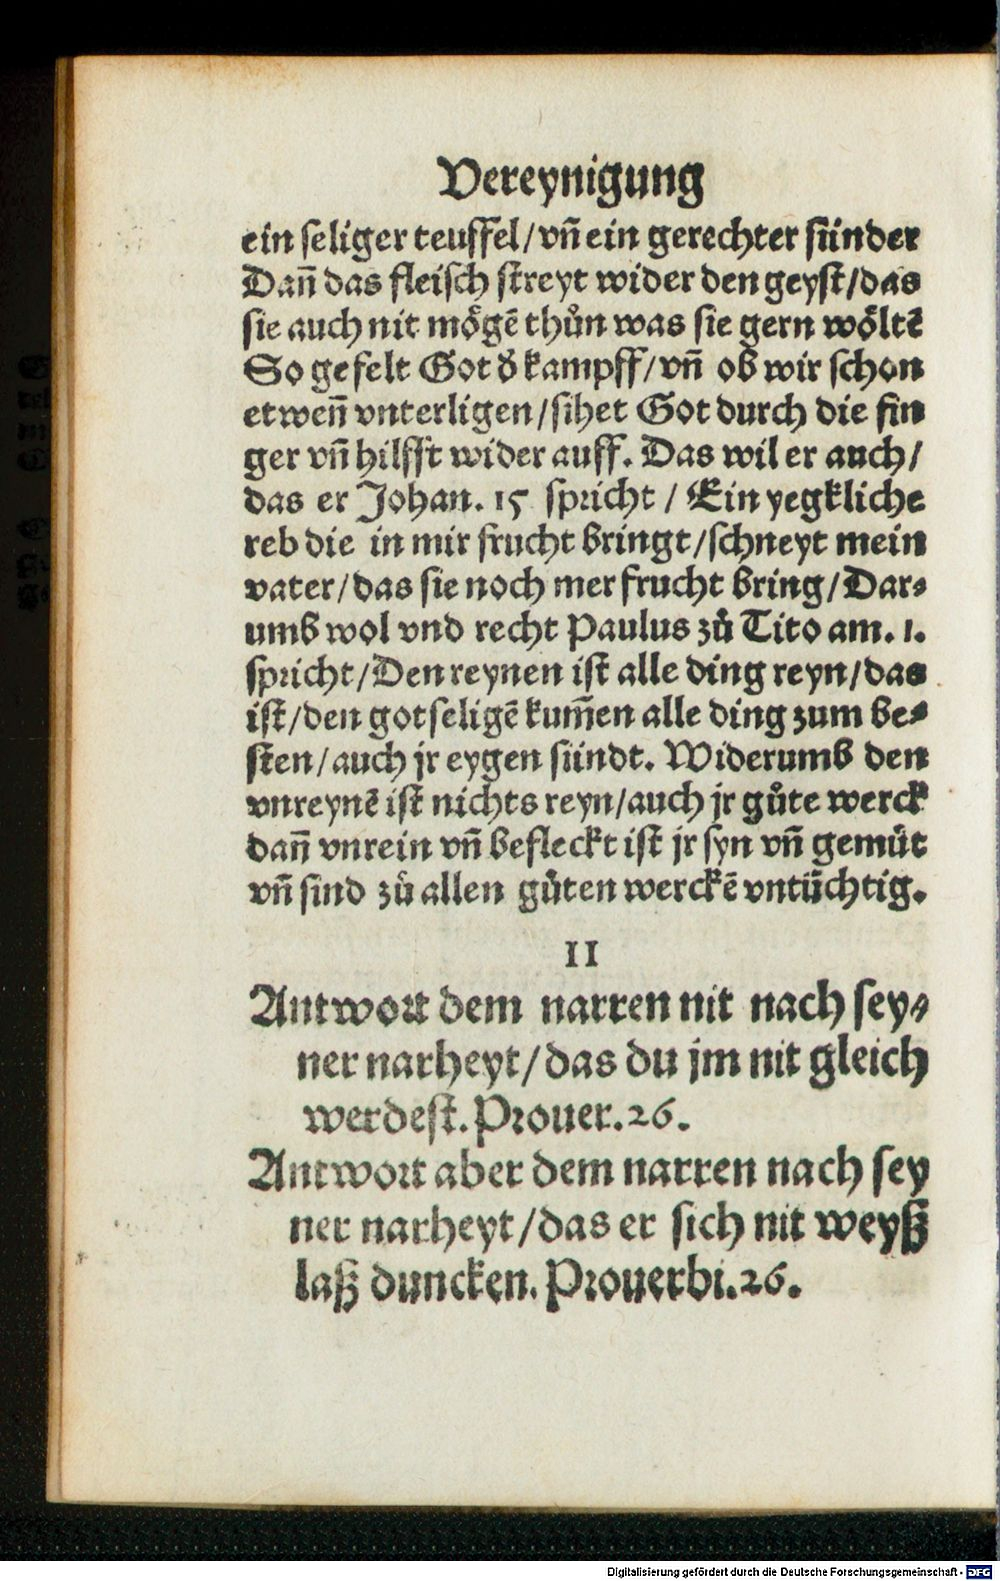 Vereynigung
ein seliger teuffel/vn̄ ein gerechter sünder
Dan̄ das fleisch streyt wider den geyst/das
sie auch nit mögē thůn was sie gern wöltē
So gefelt Got d̕ kampff/vn̄ ob wir schon
etwen̄ vnterligen/sihet Got durch die fin
ger vn̄ hilfft wider auff. Das wil er auch/
das er Johan. 15 spricht / Ein yegkliche
reb die in mir frucht bringt/schneyt mein
vater/das sie noch mer frucht bring/Dar⸗
umb wol vnd recht Paulus zů Tito am. 1.
spricht/Den reynen ist alle ding reyn/das
ist/den gotseligē kum̄en alle ding zum be⸗
sten/auch jr eygen sündt. Widerumb den
vnreynē ist nichts reyn/auch jr gůte werck
dan̄ vnrein vn̄ befleckt ist jr syn vn̄ gemüt
vn̄ sind zů allen gůten werckē vntüchtig.
II
Antwort dem narren nit nach sey⸗
ner narheyt/das du jm nit gleich
werdest. Prouer. 26.
Antwort aber dem narren nach sey
ner narheyt/das er sich nit weyß
laß duncken. Prouerbi. 26.
Digitalisierung gefördert durch die Deutsche Forschungsgemeinschaft - DFG